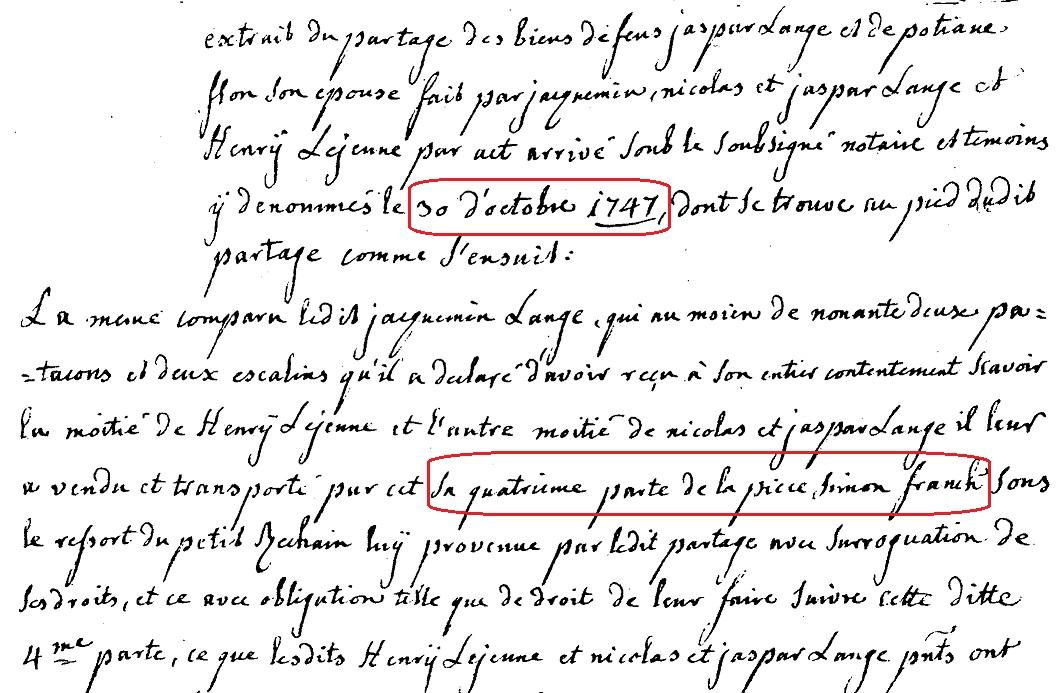 extrait du partage des biens defens jaspar Lange et de potiane
flon son epouse fait par jacquemin, nicolas et jaspar Lange et
Henrÿ Lejeune par act arrivé soub le soubsigné notaire et temoins
ÿ denommés le 30 d'octobre 1747, dont se trouve au pied dudit
partage comme s'ensuit:
La meme comparu ledit jacquemin Lange, qui au moien de nonante deux pa=
=tacons et deux escalins qu'il a declaré d'avoir reçu à son entier contentement scavoir
la moitié de Henrÿ Lejeune et l'autre moitié de nicolas et jaspar Lange il leur
a vendu et transporté par cet sa quatrieme parte de la piece, simon franck sous
le ressort du petit Rechain luÿ provenue par ledit partage avec surroguation de
ses droits, et ce avec obligation telle que de droit de leur faire suivre cette ditte
4me parte, ce que lesdits Henrÿ Lejeune et nicolas et jaspar Lange pnts ont